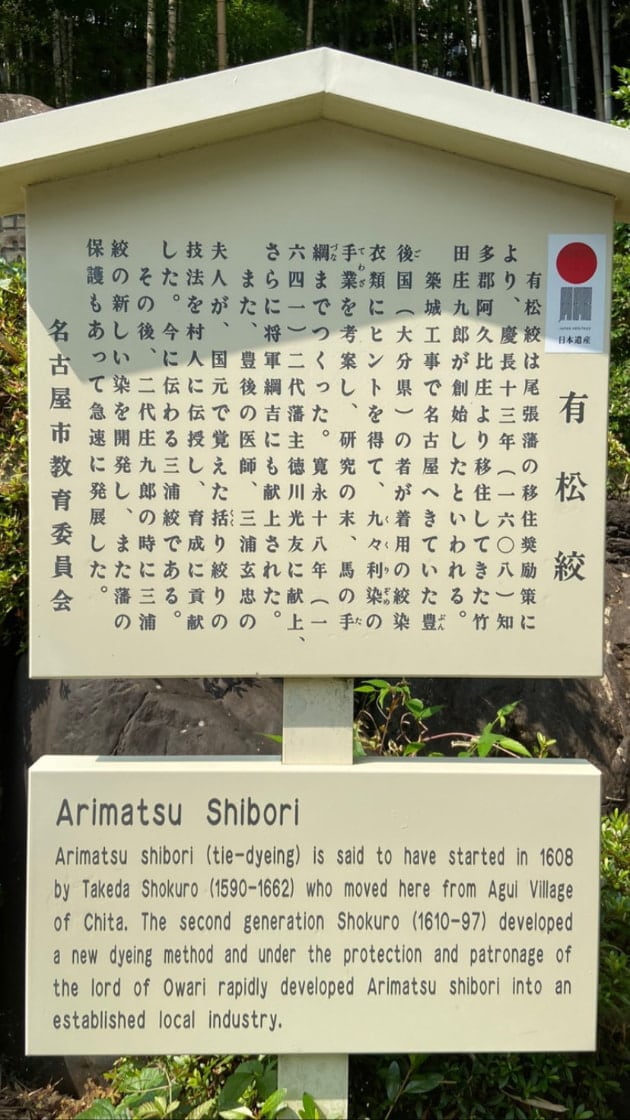 有松絞
有松絞は尾張藩の移住奨励策に
より、慶長十三年(一六〇八)知
多郡阿久比庄より移住してきた竹
田庄九郎が創始したといわれる。
築城工事で名古屋へきていた豊ぶん
後ご国(大分県)の者が着用の絞染
衣類にヒントを得て、九々利染くくりぞめの
手業てわざを考案し、研究の末、馬の手た
綱づなまでつくった。寛永十八年(一
六四一)二代藩主徳川光友に献上、
さらに将軍綱吉にも献上された。
また、豊後の医師、三浦玄忠の
夫人が、国元で覚えた括くくり絞りの
技法を村人に伝授し、育成に貢献
した。今に伝わる三浦絞である。
その後、二代庄九郎の時に三浦
絞の新しい染を開発し、また藩の
保護もあって急速に発展した。
名古屋市教育委員会
JAPAN HERITAGE
日本遺産
Arimatsu Shibori
Arimatsu shibori (tie-dyeing) is said to have started in 1608
by Takeda Shokuro (1590-1662) who moved here from Agui Village
of Chita. The second generation Shokuro (1610-97) developed
a new dyeing method and under the protection and patronage of
the lord of Owari rapidly developed Arimatsu shibori into an
established local industry.